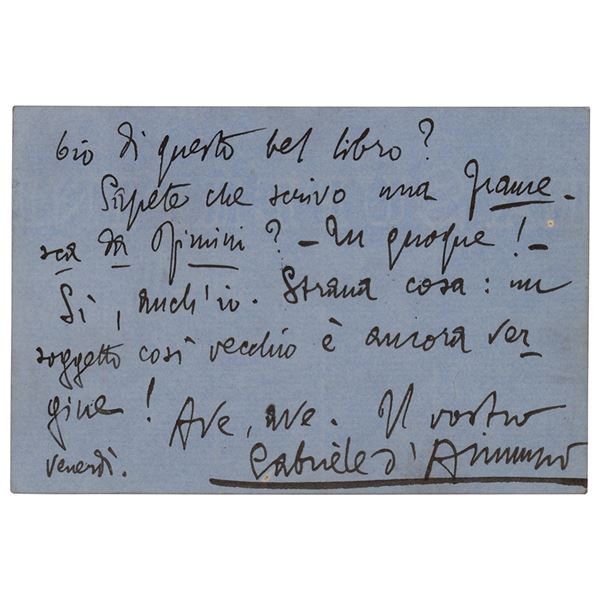 bio di questo bel libro?
Sapete che scrivo una France-
sca da Rimini? - Tu quoque! -
Sì, anch'io. Strana cosa: un
soggetto così vecchio è ancora ver-
gine! Ave, ave. Il vostro
venerdì. Gabriele d'Annunzio